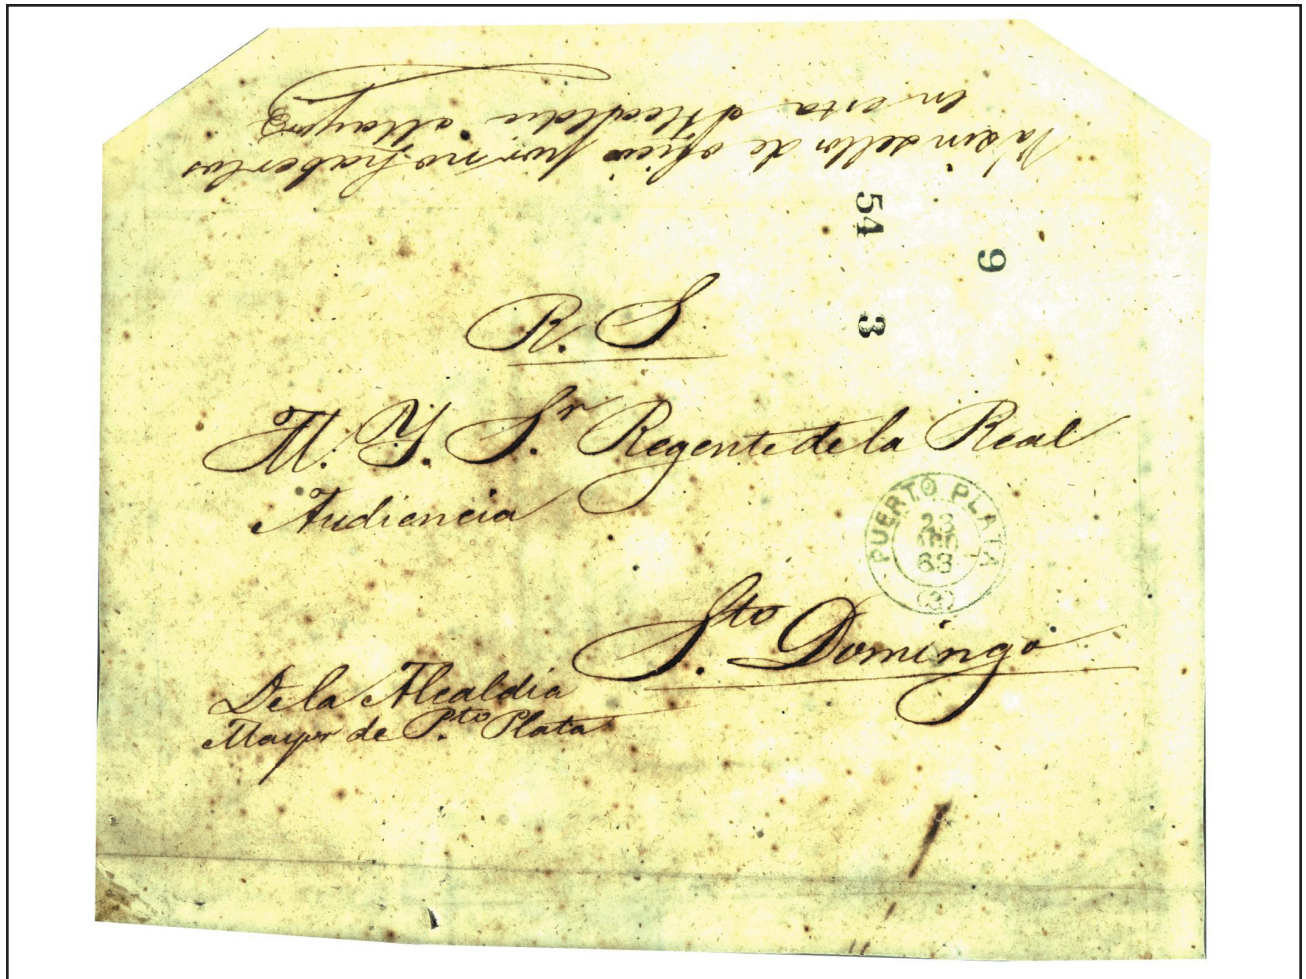 Va sin sellos de oficio por no haberlos
en esta Alcaldia Mayor
54 3
9
R. S.
M. Y. S.r Regente de la Real
Audiencia
PUERTO PLATA
23
AGO
63
(3)
S.to Domingo
De la Alcaldia
Mayor de P.to Plata